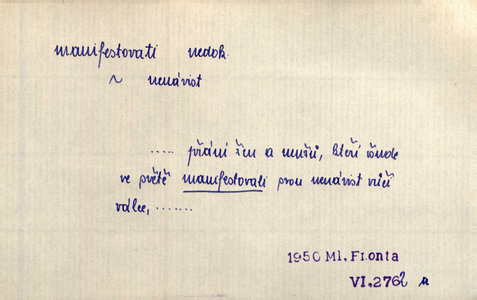 manifestovati nedok.
~ nenávist
..... přání žen a mužů, kteří všude
ve světě manifestovali svou nenávist vůči
válce, .......
1950 Ml. Fronta
VI. 2762